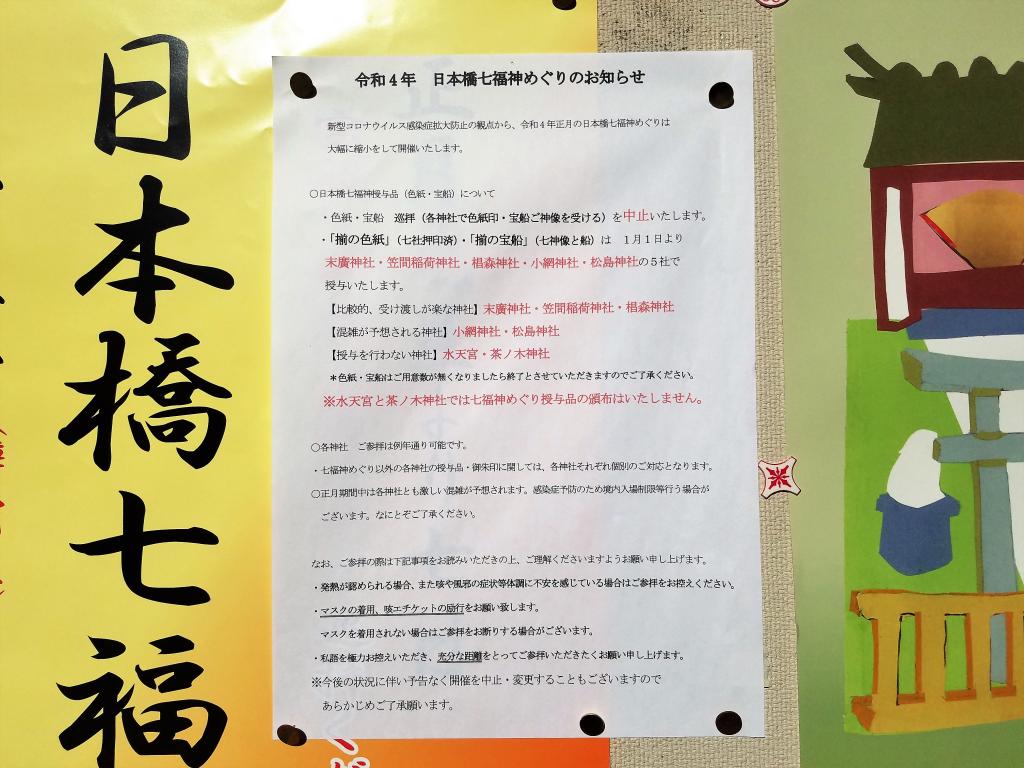 日本橋七福
令和４年　日本橋七福神めぐりのお知らせ
新型コロナウイルス感染症拡大防止の観点から、令和４年正月の日本橋七福神めぐりは
大幅に縮小をして開催いたします。
○日本橋七福神授与品（色紙・宝船）について
・色紙・宝船　巡拝（各神社で色紙印・宝船ご神像を受ける）を中止いたします。
・「揃の色紙」（七社押印済）・「揃の宝船」（七神像と船）は　１月１日より
末廣神社・笠間稲荷神社・椙森神社・小網神社・松島神社の５社で
授与いたします。
【比較的、受け渡しが楽な神社】末廣神社・笠間稲荷神社・椙森神社
【混雑が予想される神社】小網神社・松島神社
【授与を行わない神社】水天宮・茶ノ木神社
＊色紙・宝船はご用意数が無くなりましたら終了とさせていただきますのでご了承ください。
※水天宮と茶ノ木神社では七福神めぐり授与品の頒布はいたしません。
○各神社　ご参拝は例年通り可能です。
・七福神めぐり以外の各神社の授与品・御朱印に関しては、各神社それぞれ個別のご対応となります。
○正月期間中は各神社とも激しい混雑が予想されます。感染症予防のため境内入場制限等行う場合が
ございます。なにとぞご了承ください。
なお、ご参拝の際は下記事項をお読みいただきの上、ご理解くださいますようお願い申し上げます。
・発熱が認められる場合、また咳や風邪の症状等体調に不安を感じている場合はご参拝をお控えください。
・マスクの着用、咳エチケットの励行をお願い致します。
マスクを着用されない場合はご参拝をお断りする場合がございます。
・私語を極力お控えいただき、充分な距離をとってご参拝いただきたくお願い申し上げます。
※今後の状況に伴い予告なく開催を中止・変更することもございますので
あらかじめご了承願います。